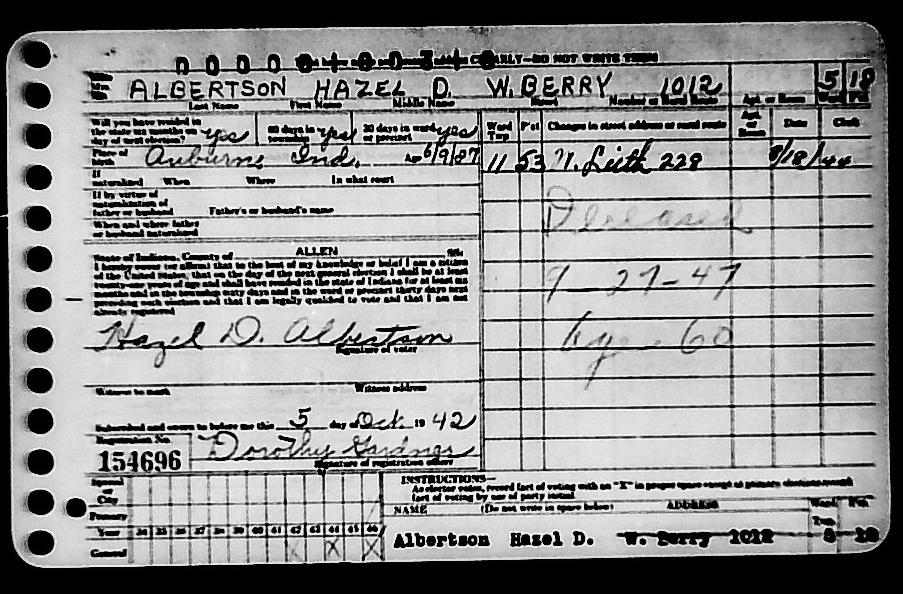 CLEARLY—DO NOT WRITE THIS
ALBERTSON HAZEL D. W. BERRY 1012 5 18
Last Name First Name Middle Name Street Number or Rural Route Apt. or Room Ward Pct
Will you have resided in the state six months on day of next election? Yes 60 days in township? Yes 30 days in ward or precinct yes
Ward Twp Pct Changes in street address or rural route Apt. or Room Date Clerk
Place of Birth Auburn, Ind. Age 6/9/87 11 53 N. Lieth 228 8/18/44
If naturalized When Where In what court
If by virtue of naturalization of father or husband Father's or husband's name
Deceased
When and where father or husband naturalized
State of Indiana, County of ALLEN SS.
I hereby swear (or affirm) that to the best of my knowledge or belief I am a citizen
of the United States, that on the day of the next general election I shall be at least
twenty-one years of age and shall have resided in the state of Indiana for at least six
months and in the township sixty days and in the ward or precinct thirty days next
preceding such election and that I am legally qualified to vote and that I am not
already registered
9-27-47
Hazel D. Albertson
Signature of voter
Age 60
Witness to mark Witness address
Subscribed and sworn to before me this 5 day of Oct. 19 42
Registration No. 154696
Dorothy Gardner
Signature of registration officer
INSTRUCTIONS—
As elector votes, record fact of voting with an "X" in proper space except at primary elections, record
fact of voting by use of party initial
Special or City
Primary
Year 34 35 36 37 38 39 40 41 42 43 44 45 46
General X X X
NAME (Do not write in space below) ADDRESS Ward Twp. Pct.
Albertson Hazel D. W. Berry 1012 5 18